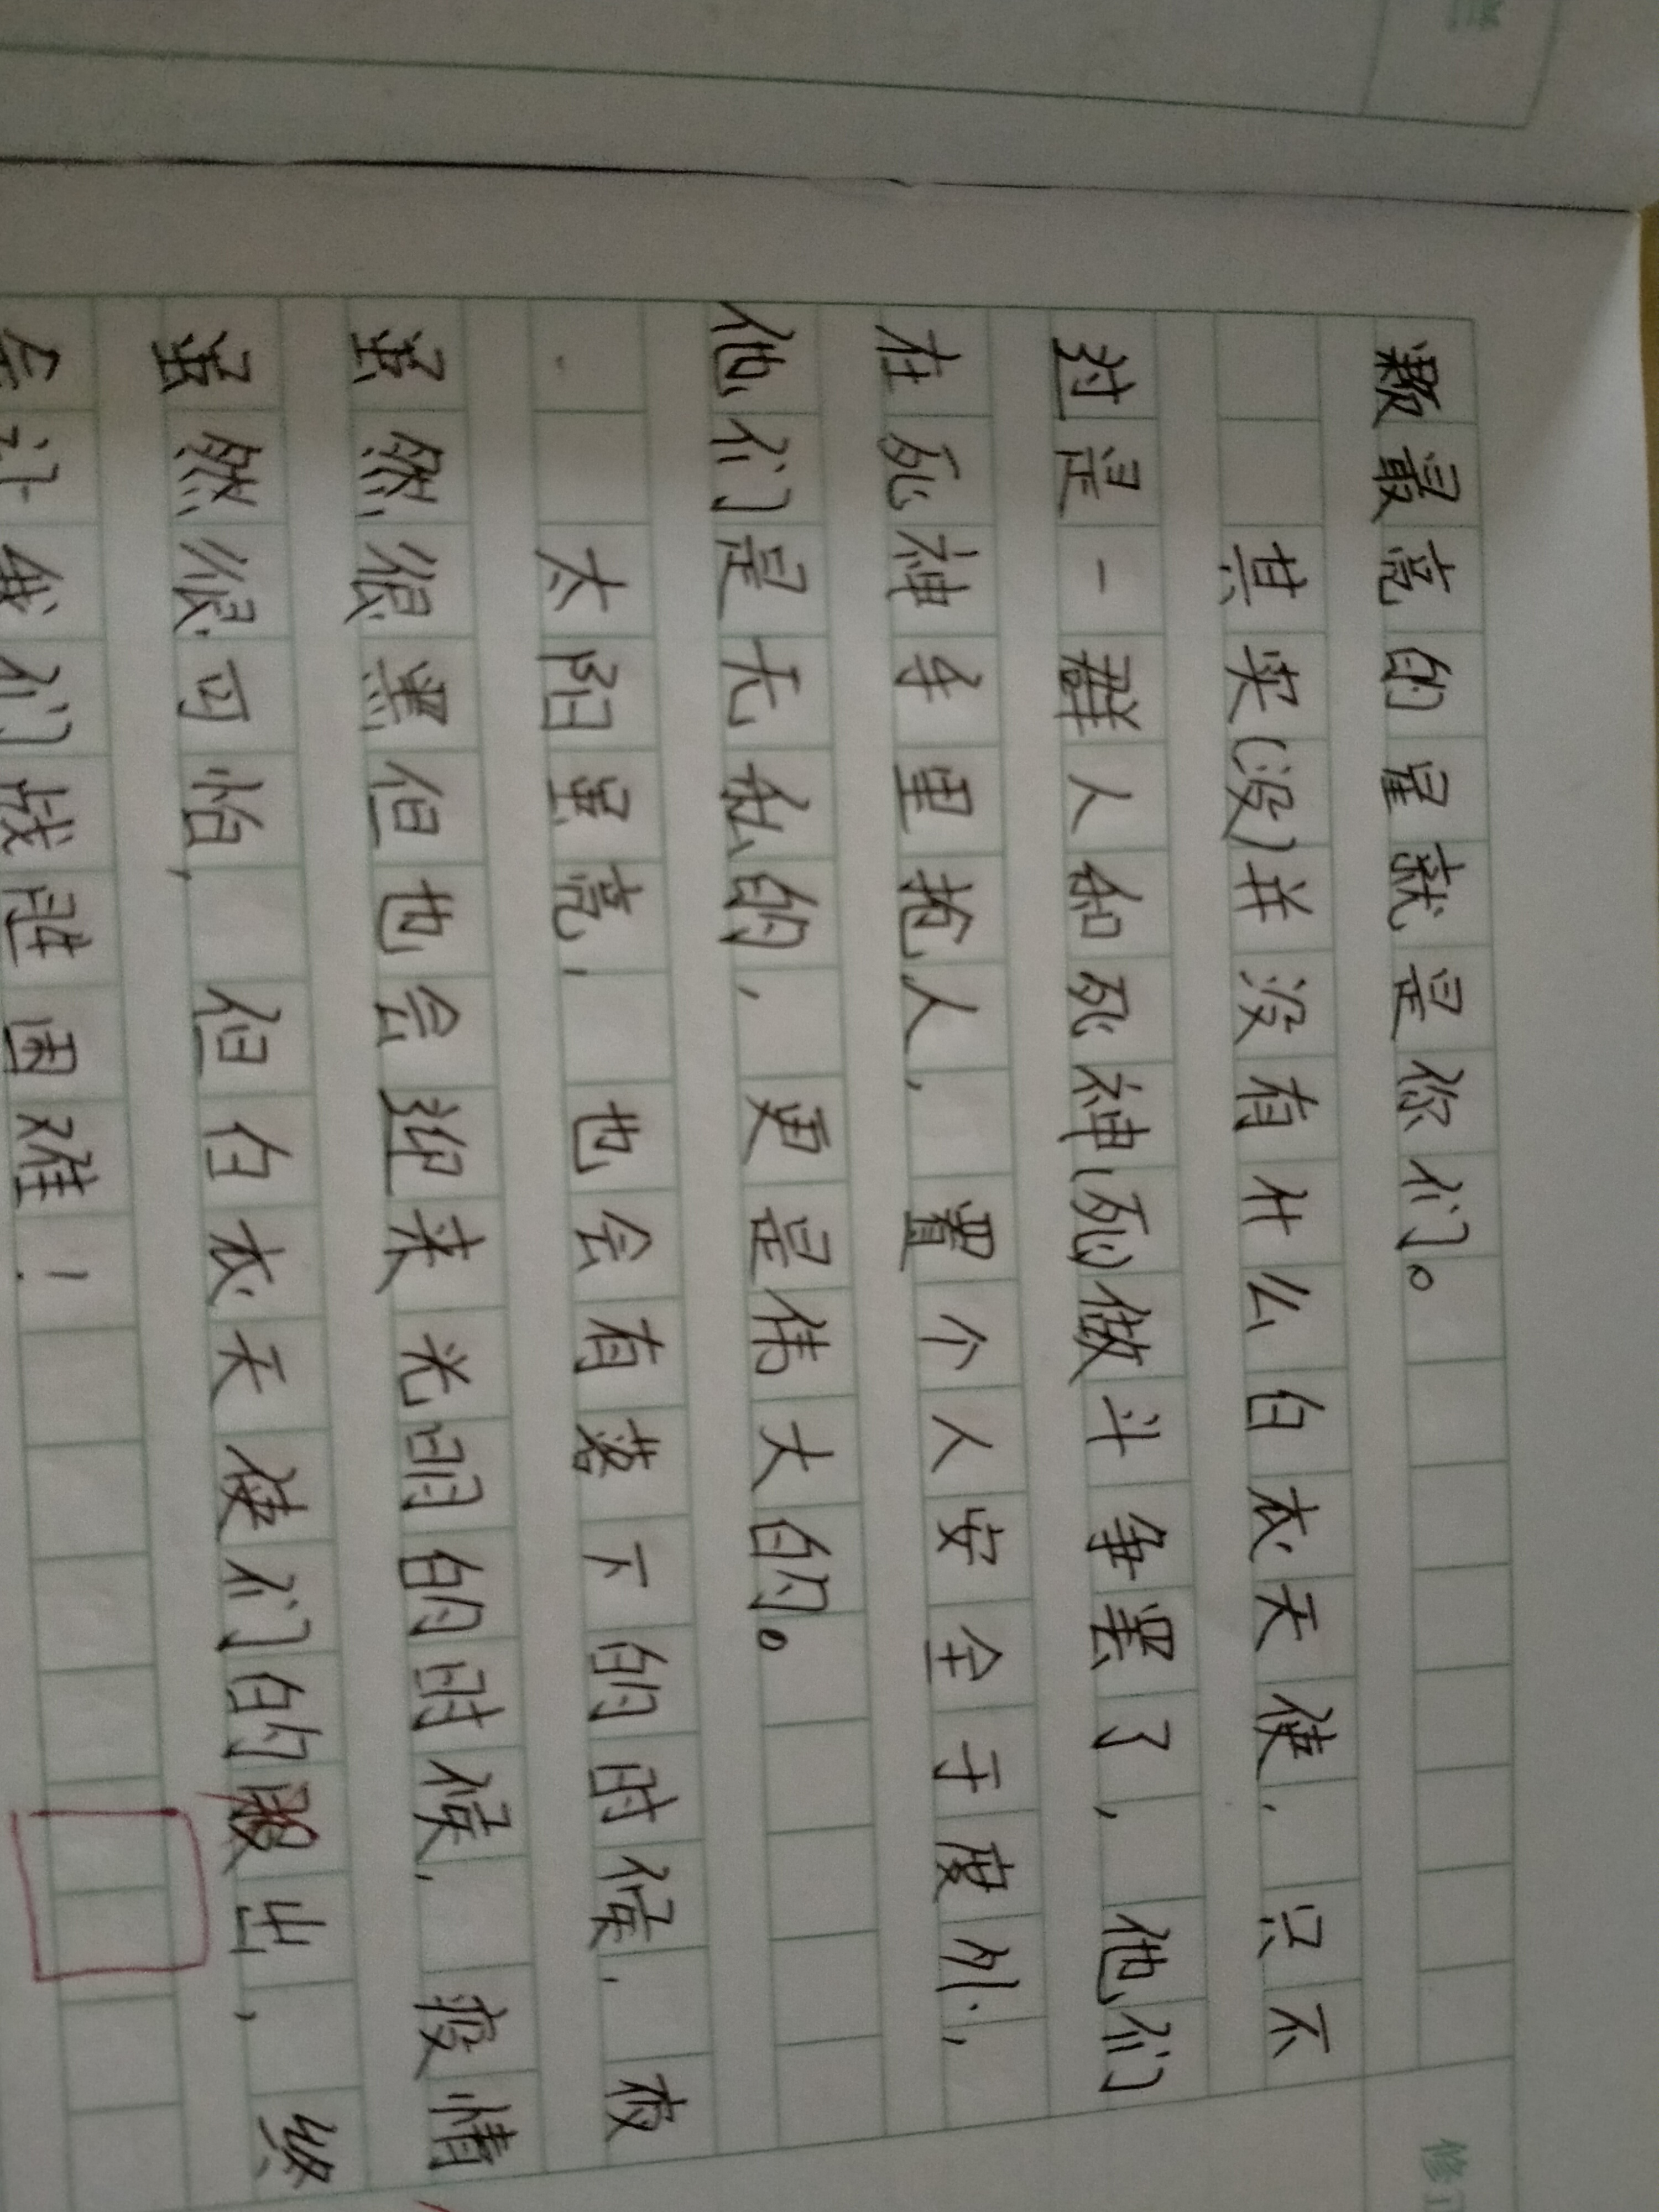 颗最亮的星就是你们。
其实(没)并没有什么白衣天使,只不
过是一群人和死神(死)做斗争罢了,他们
在死神手里抢人,置个人安全于度外,
他们是无私的,更是伟大的。
太阳虽亮,也会有落下的时候,夜
虽然很黑但也会迎来光明的时候,疫情
虽然很可怕,但白衣天使们的服出,终
会让我们战胜困难!